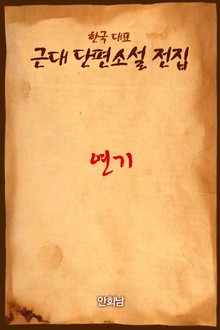 한국 대표
근대 단편소설 전집
연기
안회남